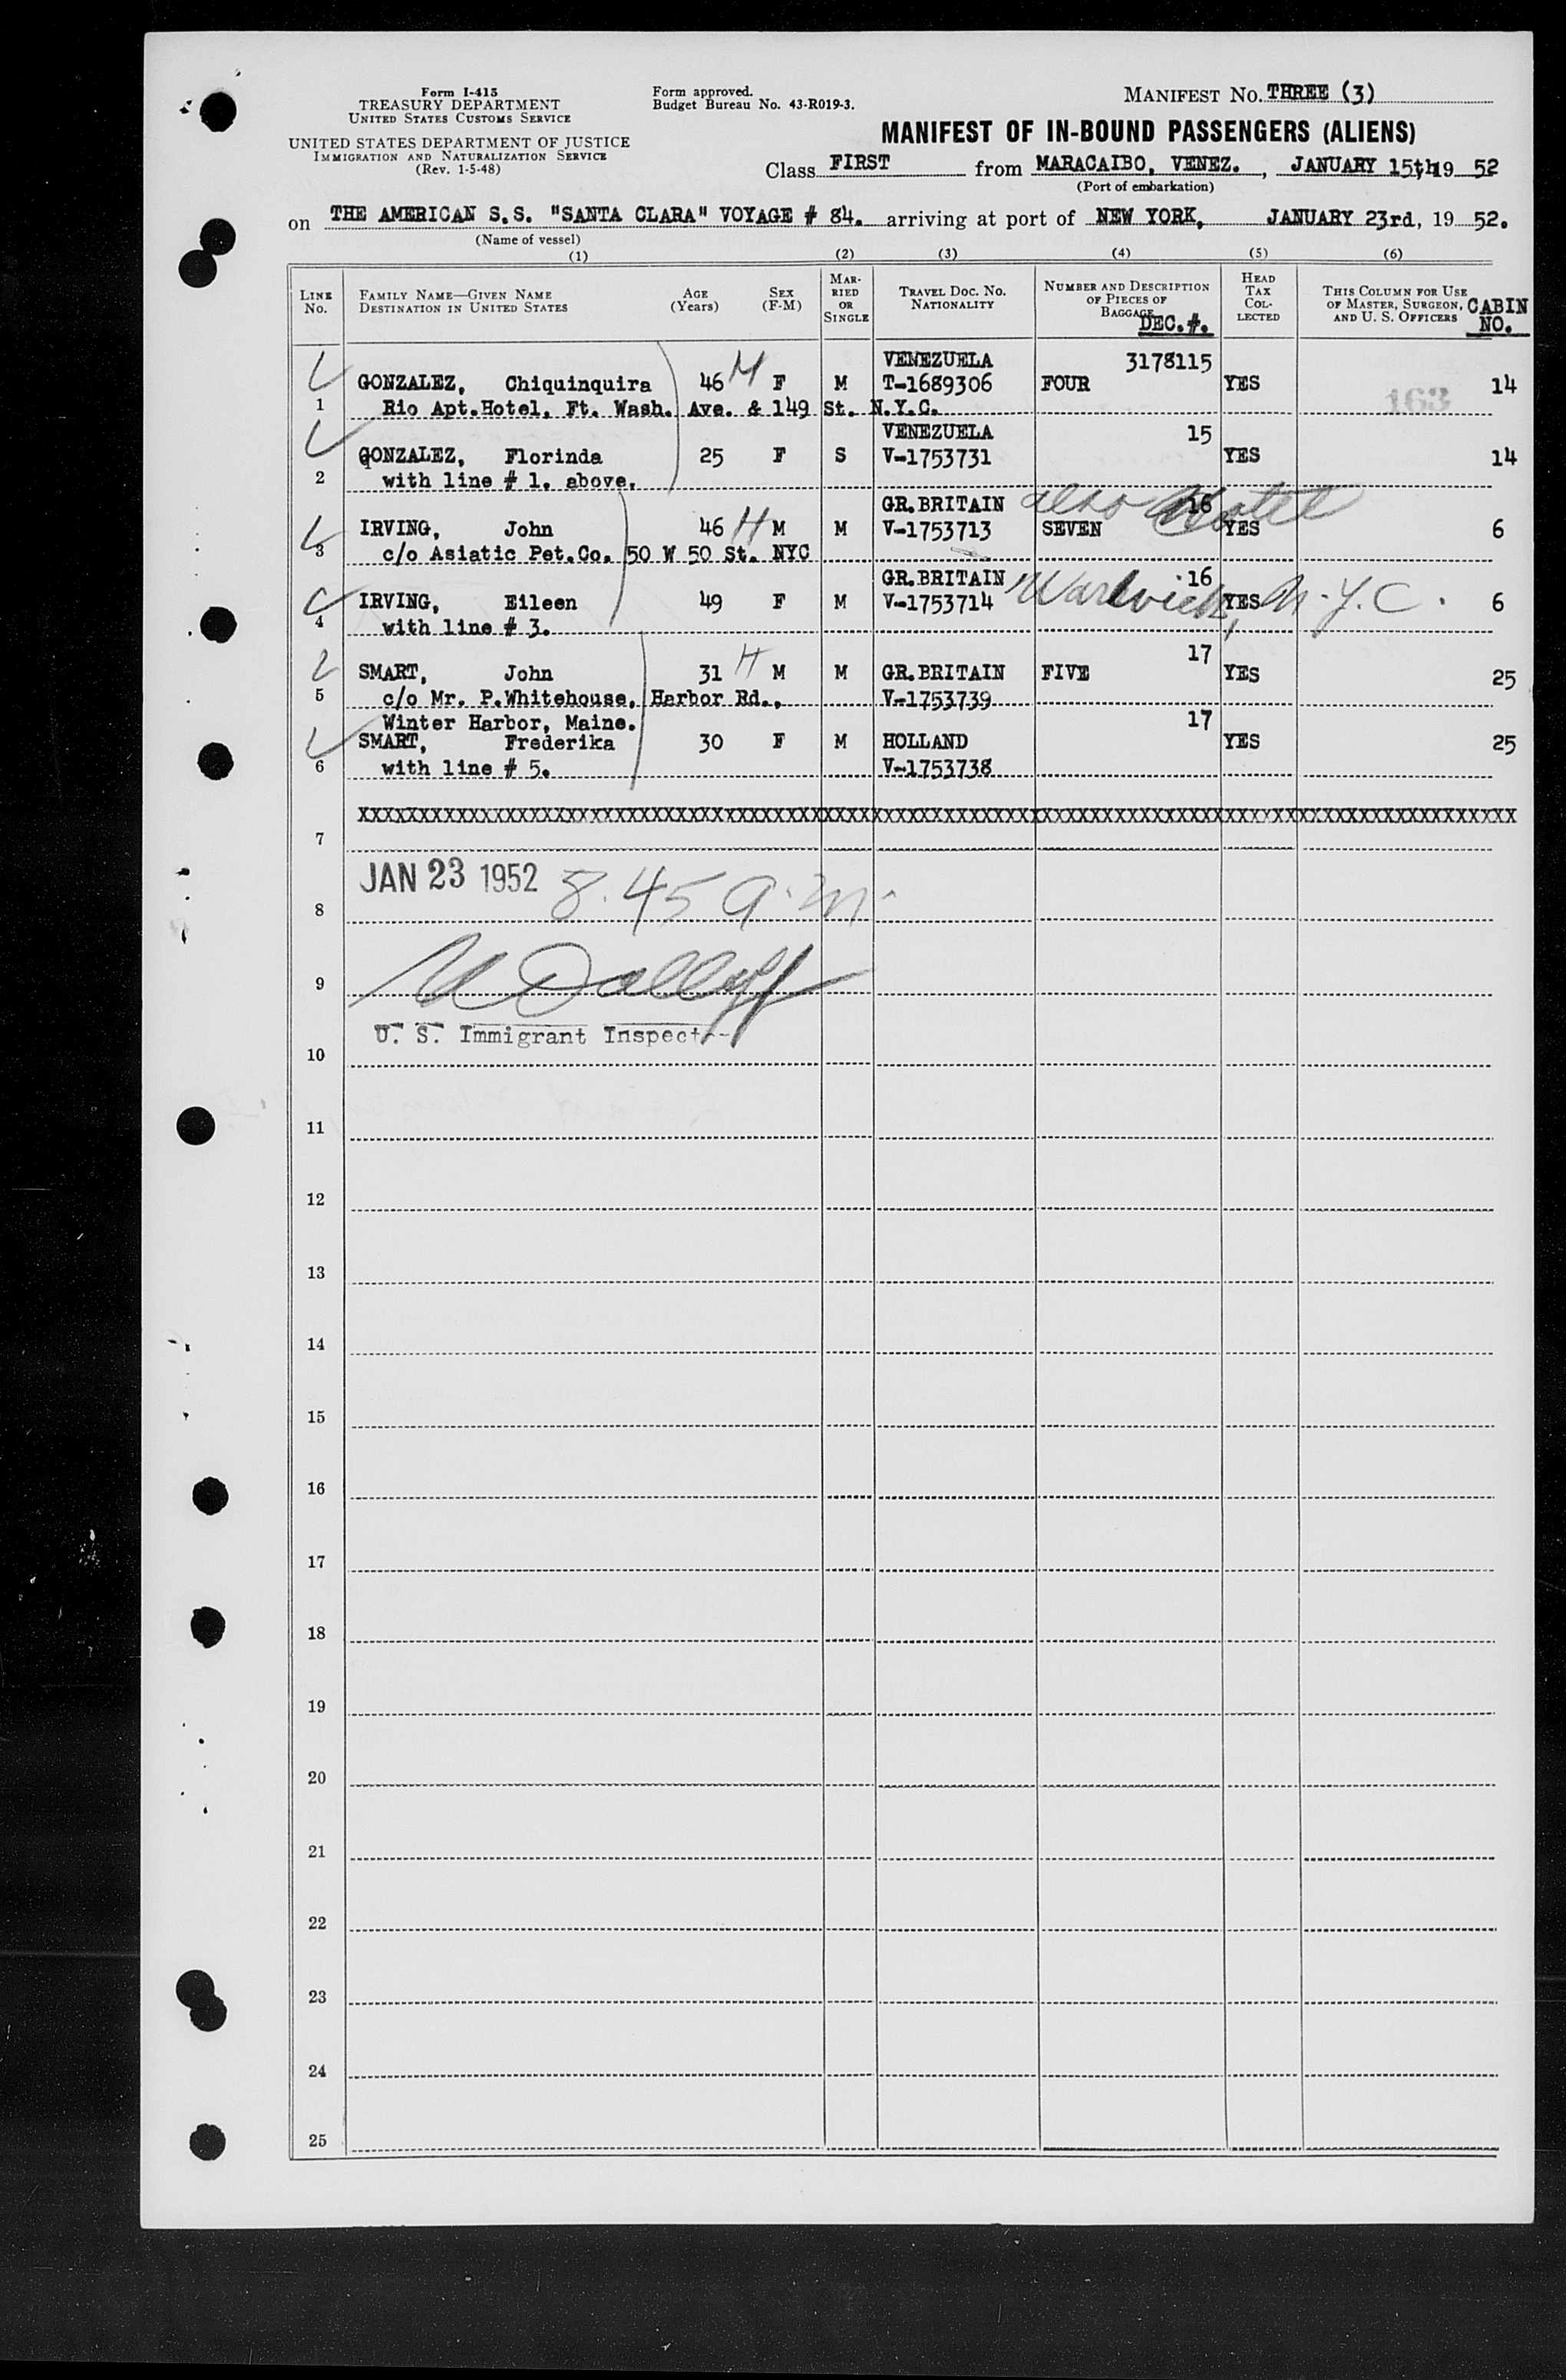 Form I-415
TREASURY DEPARTMENT
UNITED STATES CUSTOMS SERVICE
UNITED STATES DEPARTMENT OF JUSTICE
IMMIGRATION AND NATURALIZATION SERVICE
(Rev. 1-5-48)
Form approved.
Budget Bureau No. 43-R019-3.
MANIFEST NO. THREE (3)
MANIFEST OF IN-BOUND PASSENGERS (ALIENS)
Class FIRST from MARACAIBO, VENEZ. , JANUARY 15th, 19 52
(Port of embarkation)
on THE AMERICAN S.S. "SANTA CLARA" VOYAGE # 84. arriving at port of NEW YORK, JANUARY 23rd, 19 52.
(Name of vessel)
(1) (2) (3) (4) (5) (6)
LINE NO. FAMILY NAME—GIVEN NAME DESTINATION IN UNITED STATES AGE (Years) SEX (F-M) MARRIED OR SINGLE TRAVEL DOC. NO. NATIONALITY NUMBER AND DESCRIPTION OF PIECES OF BAGGAGE DEC.#. HEAD TAX COLLECTED THIS COLUMN FOR USE OF MASTER, SURGEON, AND U. S. OFFICERS CABIN NO.
VENEZUELA 3178115
GONZALEZ, Chiquinquira 46 M F M T-1689306 FOUR YES 14
1 Rio Apt.Hotel, Ft. Wash. Ave. & 149 St. N.Y.C. 163
VENEZUELA 15
GONZALEZ, Florinda 25 F S V-1753731 YES 14
2 with line # 1. above.
GR.BRITAIN 16 also Hotel
IRVING, John 46 H M M V-1753713 SEVEN YES 6
3 c/o Asiatic Pet.Co. 50 W 50 St. NYC
GR.BRITAIN 16
IRVING, Eileen 49 F M V-1753714 Warwick, YES N.Y.C. 6
4 with line # 3.
17
SMART, John 31 H M M GR.BRITAIN FIVE YES 25
5 c/o Mr. P.Whitehouse, Harbor Rd., V-1753739
Winter Harbor, Maine. 17
SMART, Frederika 30 F M HOLLAND YES 25
6 with line # 5. V-1753738
XXXXXXXXXXXXXXXXXXXXXXXXXXXXXXXXXXXXXXXXXXXXXXXXXXXXXXXXXXXXXXXXXXXXXXXXXXXXXXXXXXXXXXXXXXXXXXX
7
JAN 23 1952 8.45 a.m.
8
9
U. S. Immigrant Inspector
10
11
12
13
14
15
16
17
18
19
20
21
22
23
24
25